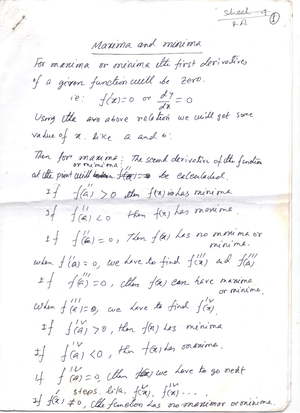 Sheet - 9
AA
①
Maxima and minima
For maxima or minima the first derivatives
of a given function will be zero.
ie: f'(x)=0 or dy/dx = 0
Using the above relation we will get some
value of x. like a and
Then for maxima; The second derivative of the function
or minima
at the point will be calculated.
If f''(a) > 0 then f(x) has minima
If f''(a) < 0 then f(x) has maxima.
If f''(a) = 0, Then f(x) has no maxima or
minima.
when f''(a) = 0, we have to find f'''(x) and f'''(a)
If f'''(a) = 0, then f(x) can have maxima
or minima.
When f'''(x)=0, we have to find f^IV(x).
If f^IV(a) > 0, then f(x) has minima
If f^IV(a) < 0, thn f(x) has maxima.
If f^IV(a) = 0, then we have to go next
steps like f^V(x), f^VI(x) ....
If f(x) ≠ 0, the function has no maxima or minima.